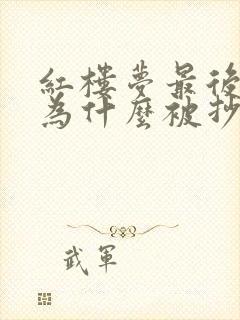 紅樓夢最後
為什麼被抄
武軍